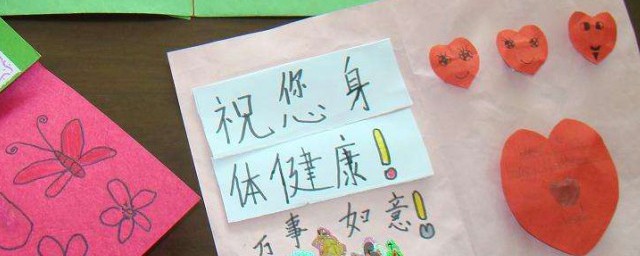 祝您身
体健康!
万事如意!